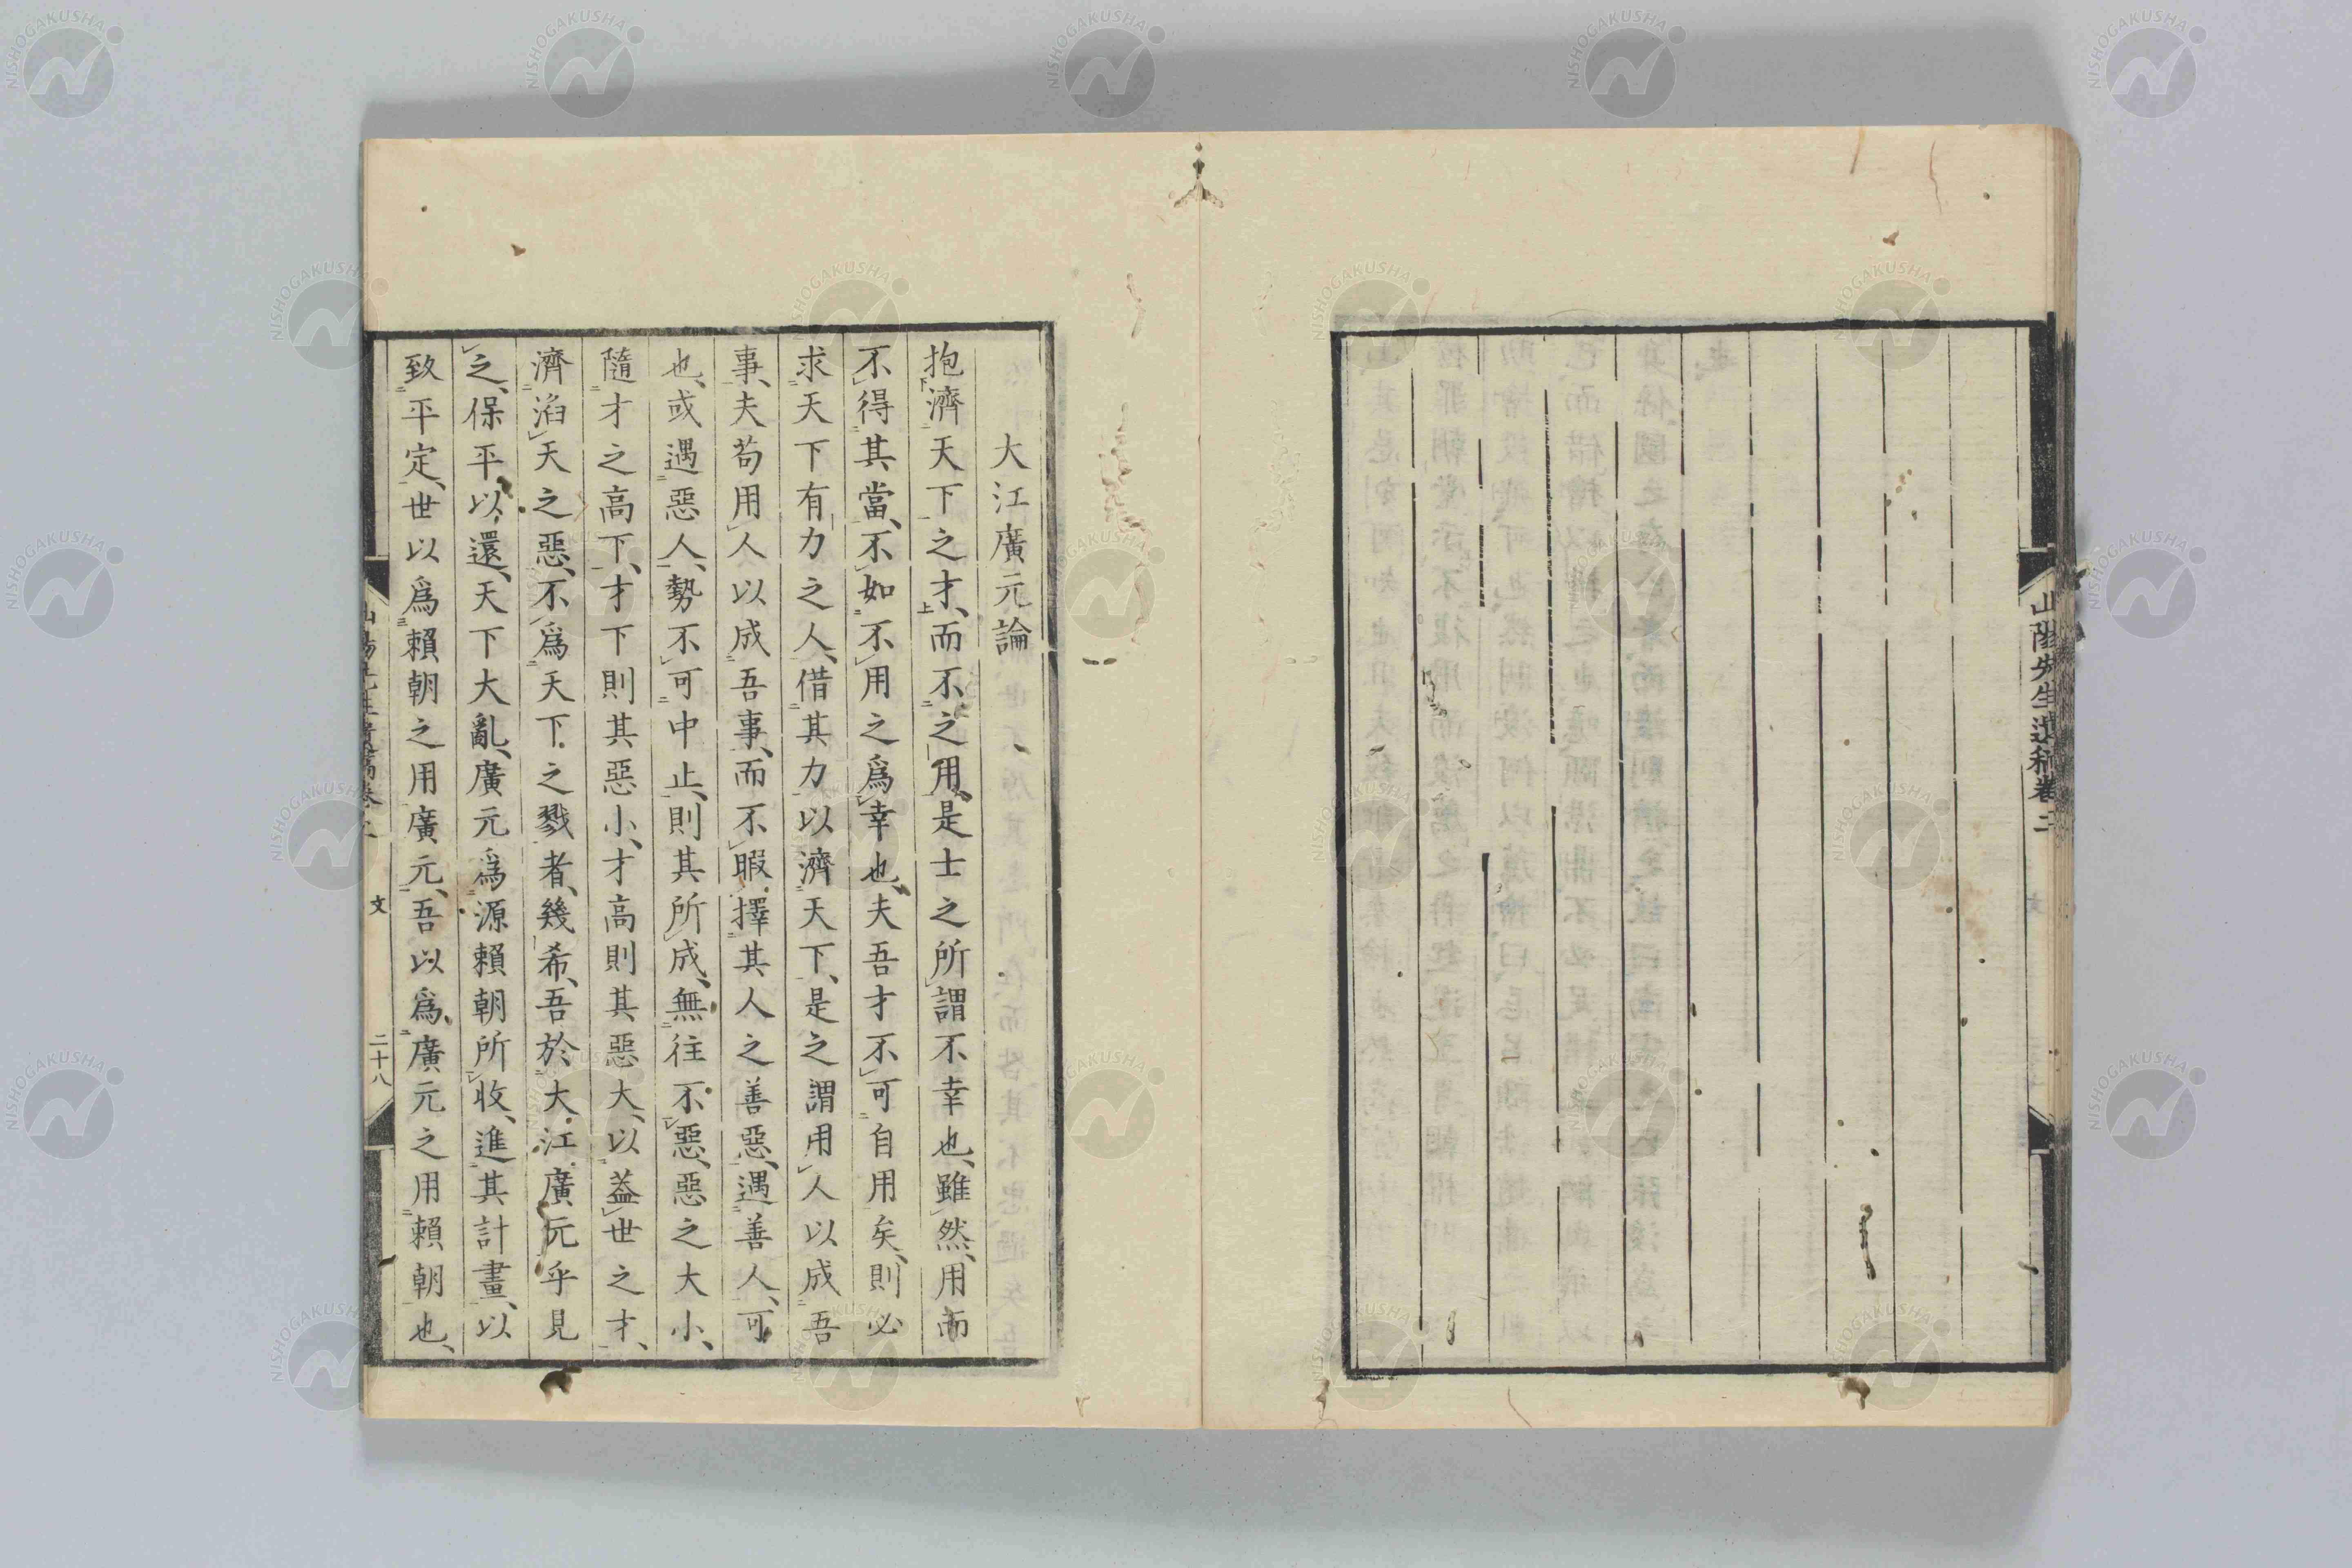 山陽先生遺稿卷二
大江廣元論
抱濟天下之才、而不之用、是士之所謂不幸也、雖然、用而
不得其當、不如不用之爲幸也、夫吾才不可自用矣、則必
求天下有力之人、借其力以濟天下、是之謂用人以成吾
事、夫苟用人以成吾事、而不暇擇其人之善惡、遇善人、可
也、或遇惡人、勢不可中止、則其所成、無往不惡、惡之大小、
隨才之高下、才下則其惡小、才高則其惡大、以蓋世之才、
濟滔天之惡、不爲天下之戮者、幾希、吾於大江廣元乎見
之、保平以還、天下大亂、廣元爲源賴朝所收、進其計畫、以
致平定、世以爲賴朝之用廣元、吾以爲廣元之用賴朝也、
文
二十八